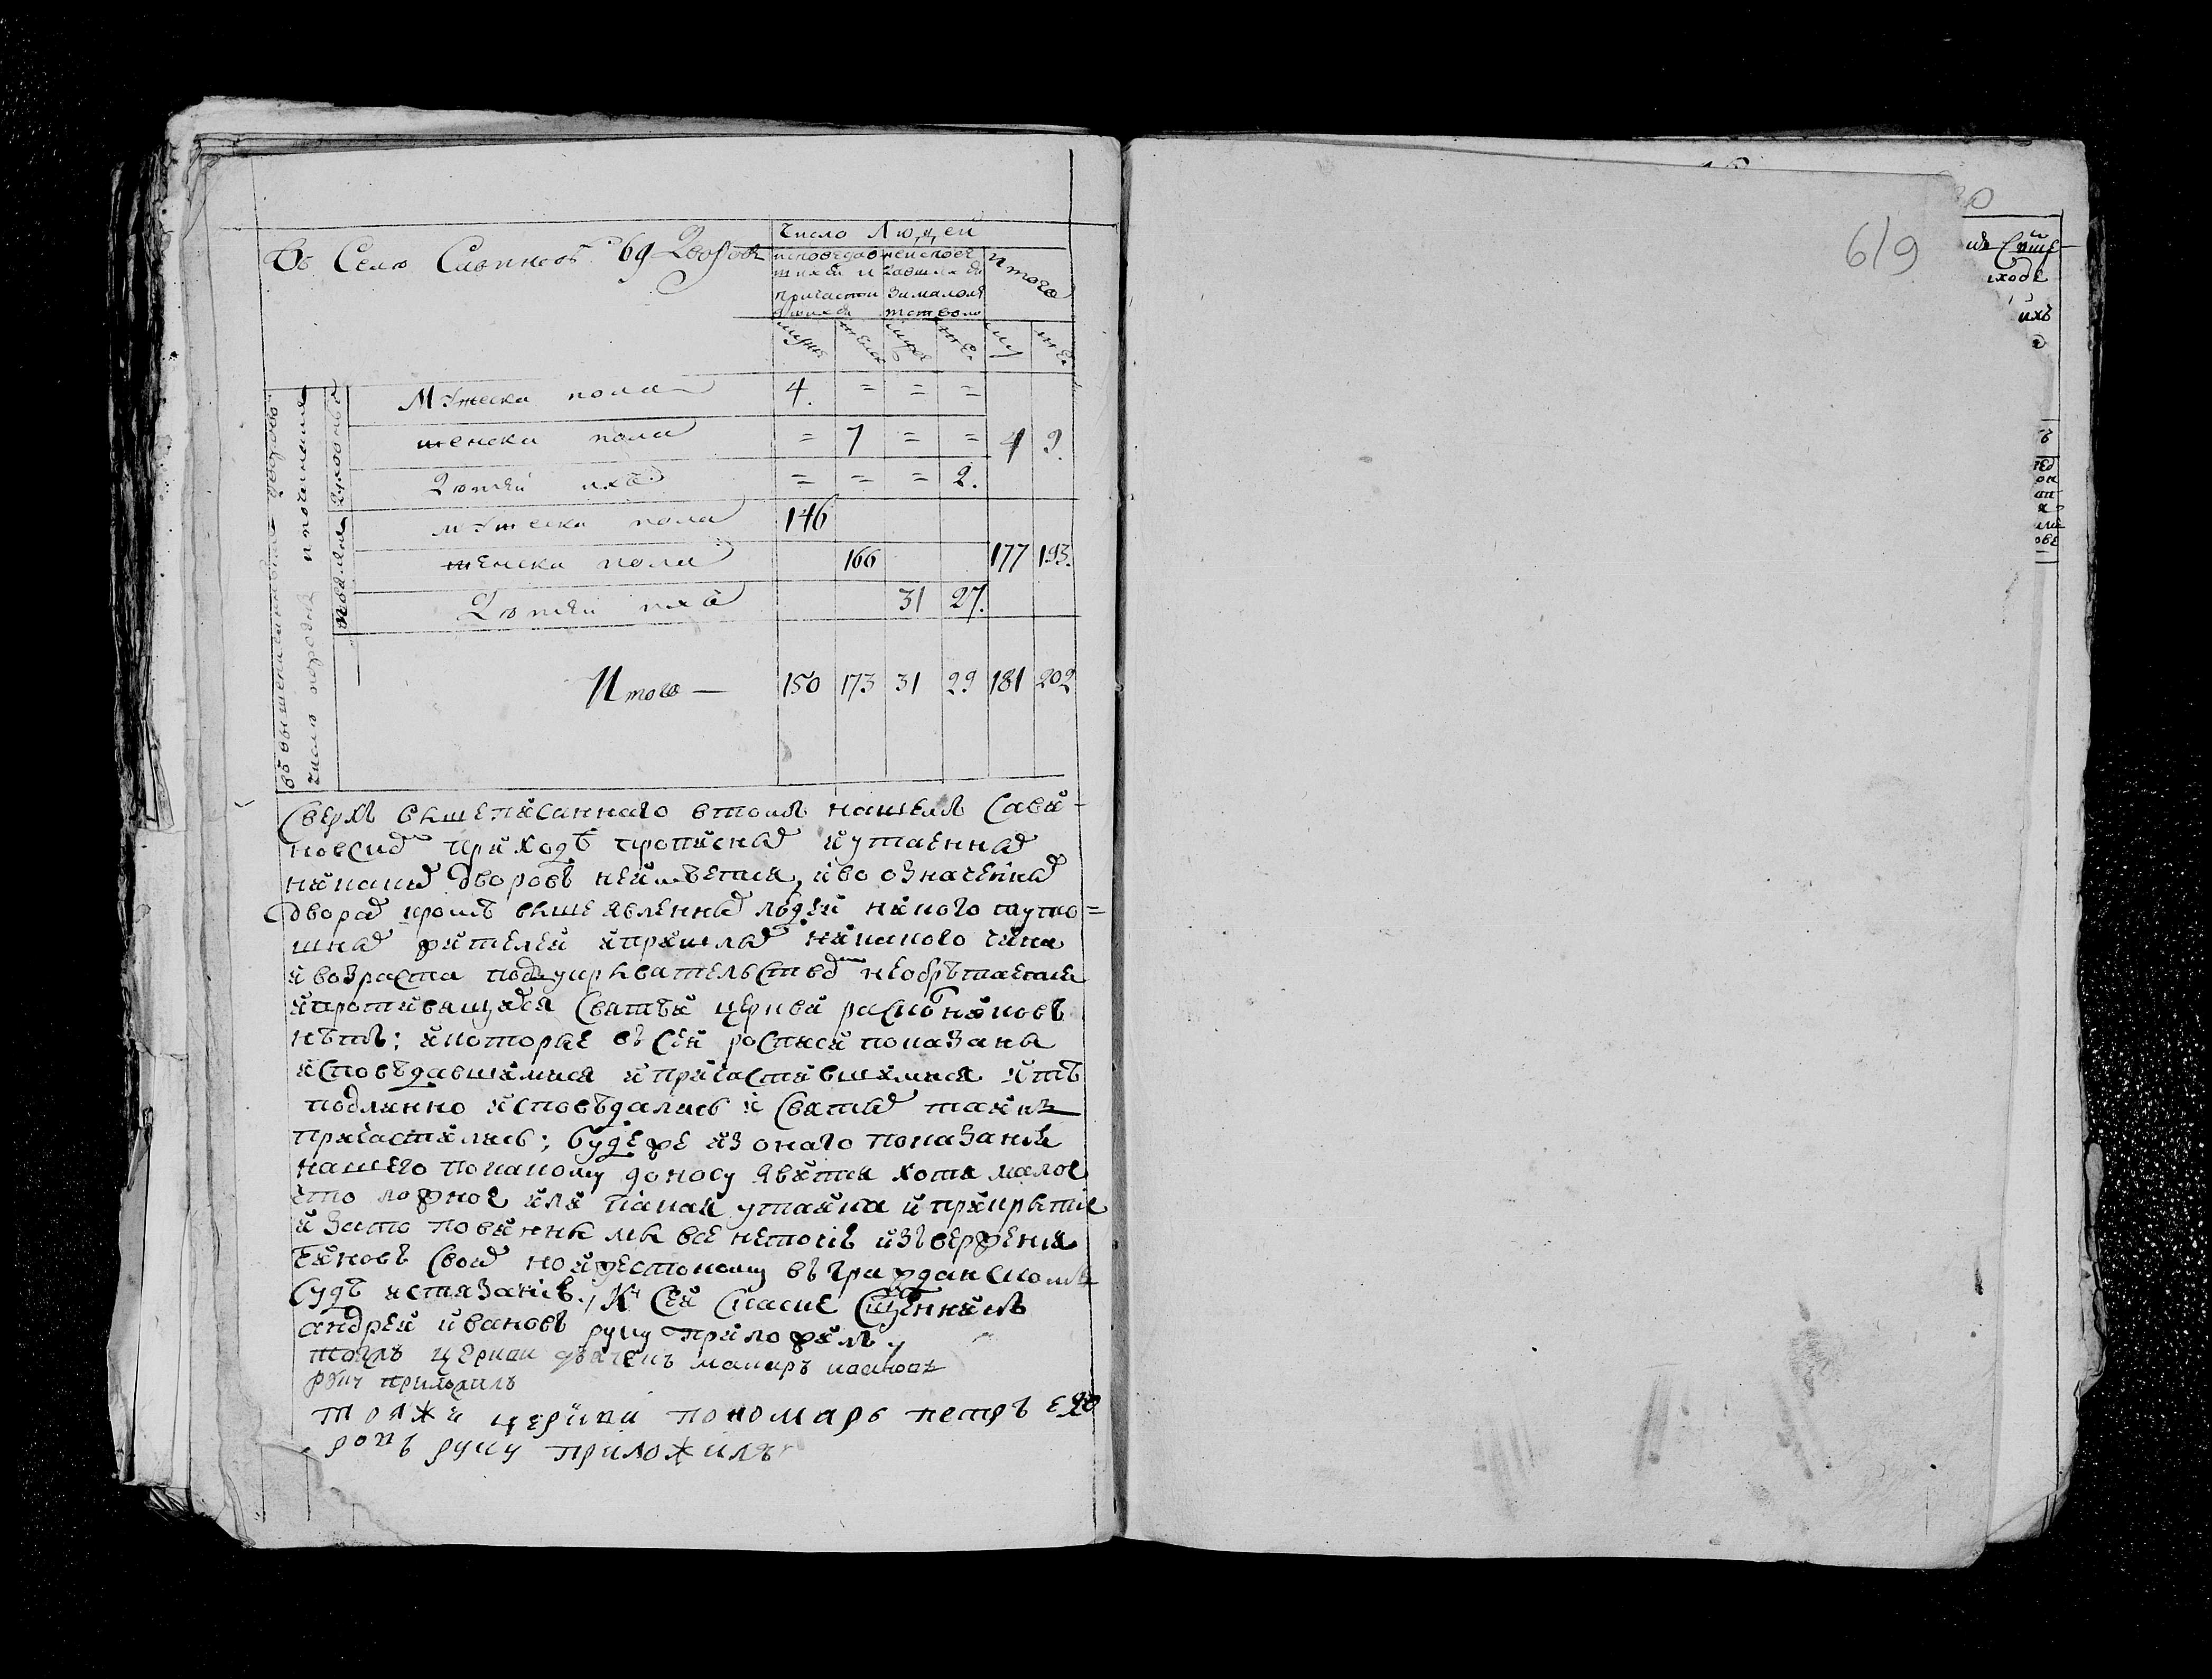 Въ Селѣ Савинскѣ 69 дворовъ
Число Людей
исповедав неисповѣ
шихся и давшихся
причасти за малолѣ
вшихся тством
Итого
муж женс муж же. му же.
Мужеска пола 4. = = =
женска пола = 7 = = 4 9.
Дѣтей ихъ = = = 2.
мужеска пола 146
женска пола 166 177 193.
Дѣтей ихъ 31 27.
Итого — 150 173 31 29 181 202
Сверхъ вышеписаннаго втомъ нашемъ Сави-
новскомъ приходѣ прописныхъ иутаенныхъ
никакихъ дворовъ неимѣется, иво означенныхъ
дворахъ кромѣ вышеявленныхъ людей никого тутош=
шныхъ жителей ипришлыхъ никакого чина
ивозраста подъ укрывательствомъ необрѣтается
ипротивящихся Святѣй церкви раскольниковъ
нѣтъ; икоторые въ сей росписи показаны
исповѣдавшимися ипричастившимися итѣ
подлинно исповѣдались и Святыхъ таинъ
причастились; будеже изонаго показания
нашего покакому доносу явится хотя малое
что ложное или какая утайка иприкрытие
и зато повинны мы все нетокмѣ извержения
чиновъ своихъ ноижестокому въ гражданскомъ
Судѣ истязанію. / Къ Сей Скаске Сщенникъ
андрей ивановъ руку приложилъ.
тояжъ церкви дьячекъ макаръ ивановъ
руку приложилъ
тояже церкви пономарь петръ ед
ровъ руку приложилъ
619
ихъ